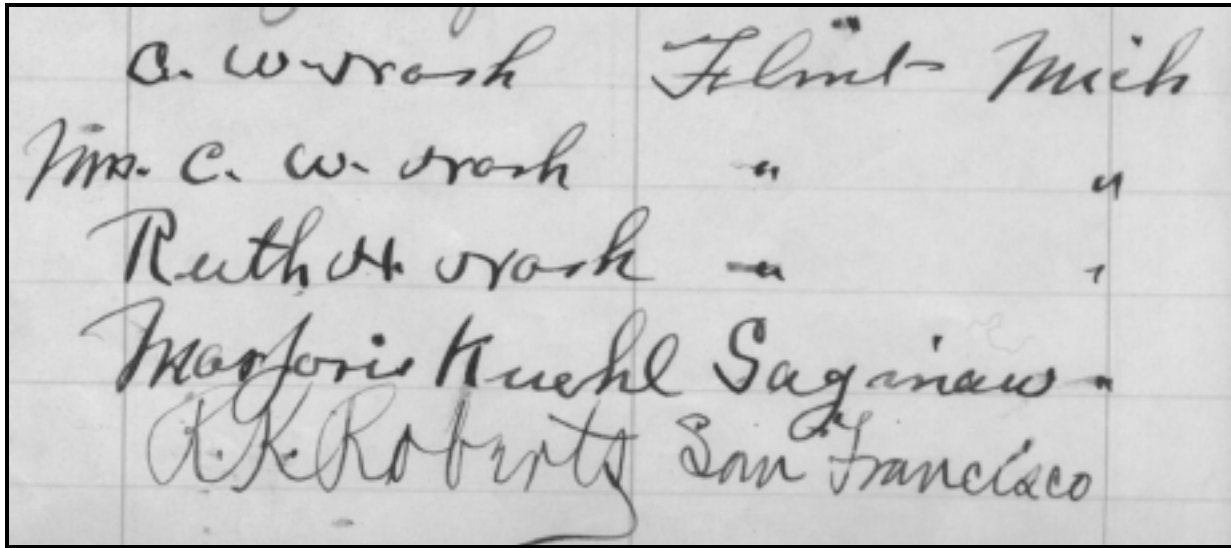 C. W. Nash Flint Mich
Mrs. C. W. Nash " "
Ruth H. Nash " "
Marjorie Kuehl Saginaw "
R. K. Roberts San Francisco